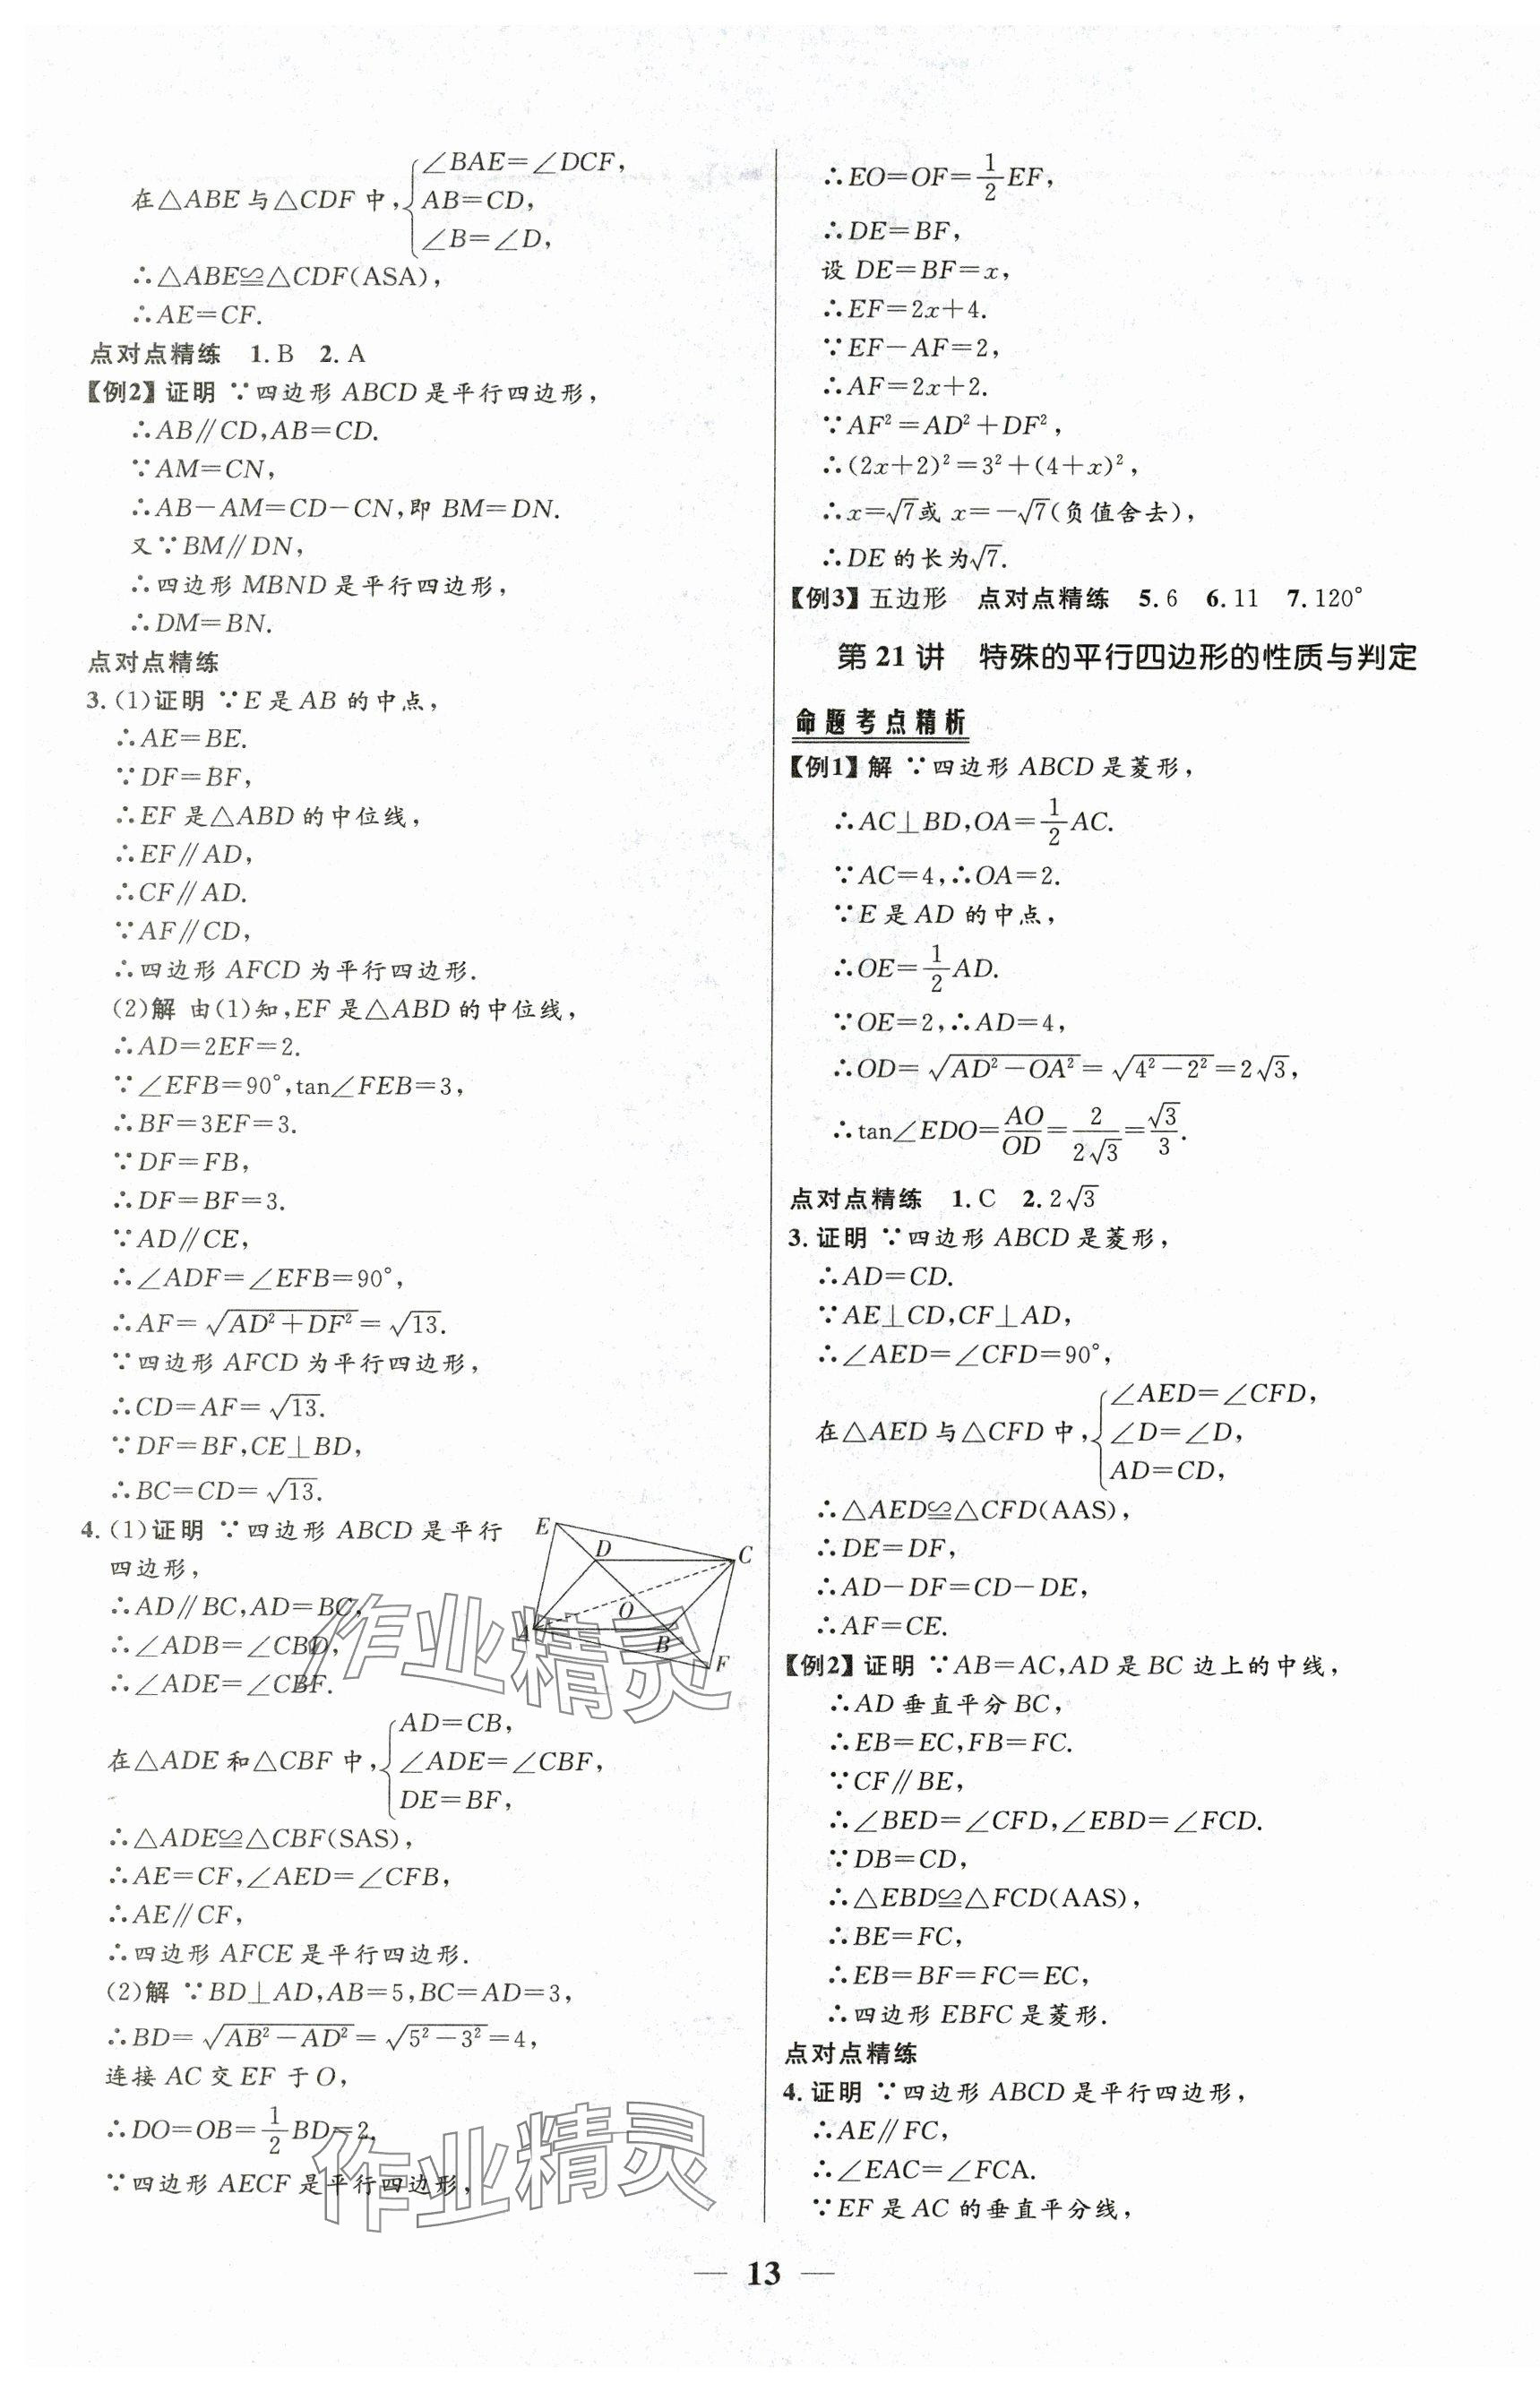 在△ABE与△CDF中,{∠BAE=∠DCF,
AB=CD,
∠B=∠D,
∴△ABE≌△CDF(ASA),
∴AE=CF.
点对点精练 1.B 2.A
【例2】证明 ∵四边形ABCD是平行四边形,
∴AB∥CD,AB=CD.
∵AM=CN,
∴AB-AM=CD-CN,即BM=DN.
又∵BM∥DN,
∴四边形MBND是平行四边形,
∴DM=BN.
点对点精练
3.(1)证明 ∵E是AB的中点,
∴AE=BE.
∵DF=BF,
∴EF是△ABD的中位线,
∴EF∥AD,
∴CF∥AD.
∵AF∥CD,
∴四边形AFCD为平行四边形.
(2)解 由(1)知,EF是△ABD的中位线,
∴AD=2EF=2.
∵∠EFB=90°,tan∠FEB=3,
∴BF=3EF=3.
∵DF=FB,
∴DF=BF=3.
∵AD∥CE,
∴∠ADF=∠EFB=90°,
∴AF=√(AD²+DF²)=√13.
∵四边形AFCD为平行四边形,
∴CD=AF=√13.
∵DF=BF,CE⊥BD,
∴BC=CD=√13.
4.(1)证明 ∵四边形ABCD是平行
四边形,
∴AD∥BC,AD=BC,
∴∠ADB=∠CBD,
∴∠ADE=∠CBF.
E
D
C
O
A
B
F
在△ADE和△CBF中,{AD=CB,
∠ADE=∠CBF,
DE=BF,
∴△ADE≌△CBF(SAS),
∴AE=CF,∠AED=∠CFB,
∴AE∥CF,
∴四边形AFCE是平行四边形.
(2)解 ∵BD⊥AD,AB=5,BC=AD=3,
∴BD=√(AB²-AD²)=√(5²-3²)=4,
连接AC交EF于O,
∴DO=OB=1/2BD=2,
∵四边形AECF是平行四边形,
∴EO=OF=1/2EF,
∴DE=BF,
设DE=BF=x,
∴EF=2x+4.
∵EF-AF=2,
∴AF=2x+2.
∵AF²=AD²+DF²,
∴(2x+2)²=3²+(4+x)²,
∴x=√7或x=-√7(负值舍去),
∴DE的长为√7.
【例3】五边形 点对点精练 5.6 6.11 7.120°
第21讲 特殊的平行四边形的性质与判定
命题考点精析
【例1】解 ∵四边形ABCD是菱形,
∴AC⊥BD,OA=1/2AC.
∵AC=4,∴OA=2.
∵E是AD的中点,
∴OE=1/2AD.
∵OE=2,∴AD=4,
∴OD=√(AD²-OA²)=√(4²-2²)=2√3,
∴tan∠EDO=AO/OD=2/(2√3)=√3/3.
点对点精练 1.C 2.2√3
3.证明 ∵四边形ABCD是菱形,
∴AD=CD.
∵AE⊥CD,CF⊥AD,
∴∠AED=∠CFD=90°,
在△AED与△CFD中,{∠AED=∠CFD,
∠D=∠D,
AD=CD,
∴△AED≌△CFD(AAS),
∴DE=DF,
∴AD-DF=CD-DE,
∴AF=CE.
【例2】证明 ∵AB=AC,AD是BC边上的中线,
∴AD垂直平分BC,
∴EB=EC,FB=FC.
∵CF∥BE,
∴∠BED=∠CFD,∠EBD=∠FCD.
∵DB=CD,
∴△EBD≌△FCD(AAS),
∴BE=FC,
∴EB=BF=FC=EC,
∴四边形EBFC是菱形.
点对点精练
4.证明 ∵四边形ABCD是平行四边形,
∴AE∥FC,
∴∠EAC=∠FCA.
∵EF是AC的垂直平分线,
作业精灵
作业精灵
— 13 —